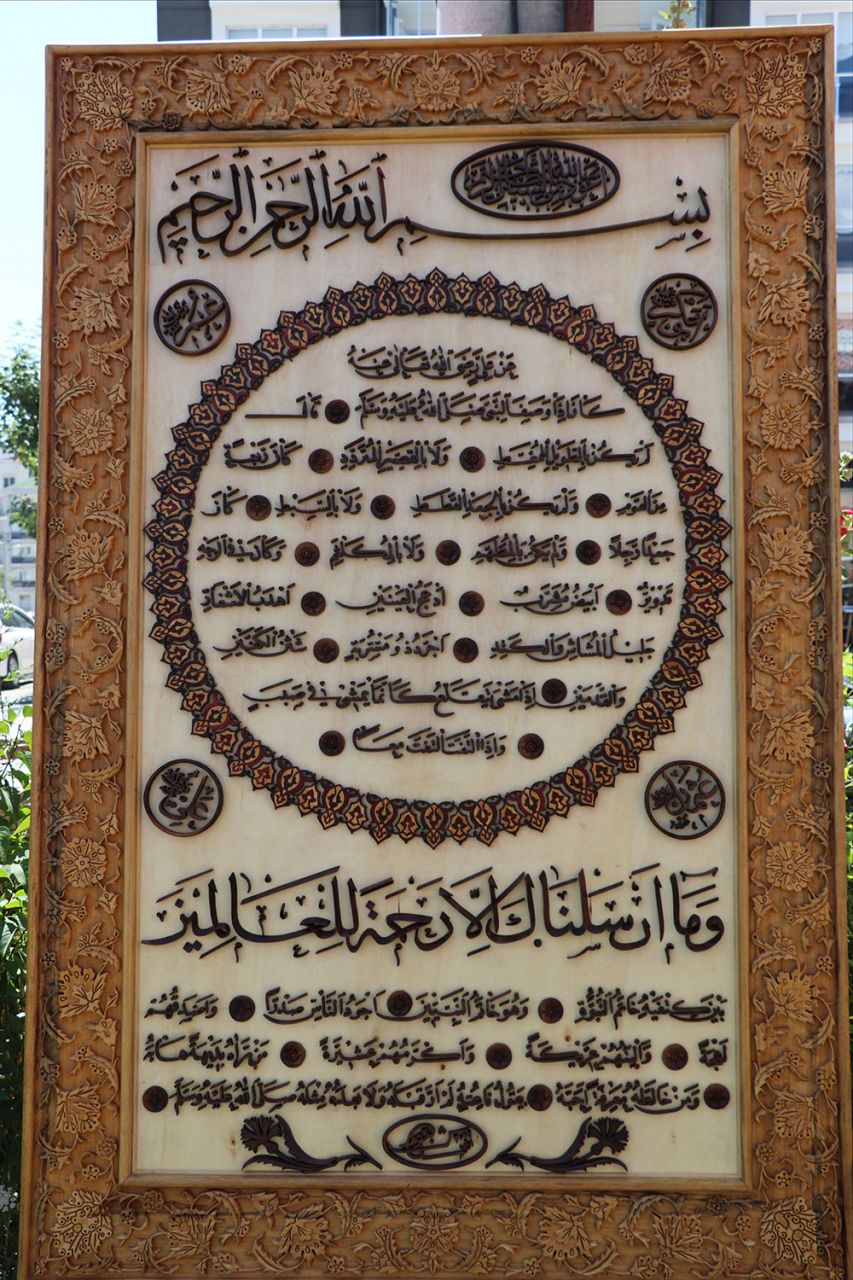 بسم الله الرحمن الرحيم
أبو بكر
عمر
عن علي رضي الله تعالى عنه
كان اذا وصف النبي صلى الله عليه وسلم قال
لم يكن بالطويل الممغط ولا بالقصير المتردد كان ربعة
من القوم ولم يكن بالجعد القطط ولا بالسبط كان
جعدا رجلا ولم يكن بالمطهم ولا بالمكلثم وكان في الوجه
تدوير ابيض مشرب ادعج العينين اهدب الاشفار
جليل المشاش والكتد اجرد ذو مسربة شثن الكفين
والقدمين اذا مشى يتقلع كانما يمشي في صبب
واذا التفت التفت معا
عثمان
علي
وما ارسلناك الا رحمة للعالمين
بين كتفيه خاتم النبوة وهو خاتم النبيين اجود الناس صدرا واصدقهم
لهجة والينهم عريكة واكرمهم عشيرة من رآه بديهة هابه
ومن خالطه معرفة احبه يقول ناعته لم ار قبله ولا بعده مثله صلى الله عليه وسلم